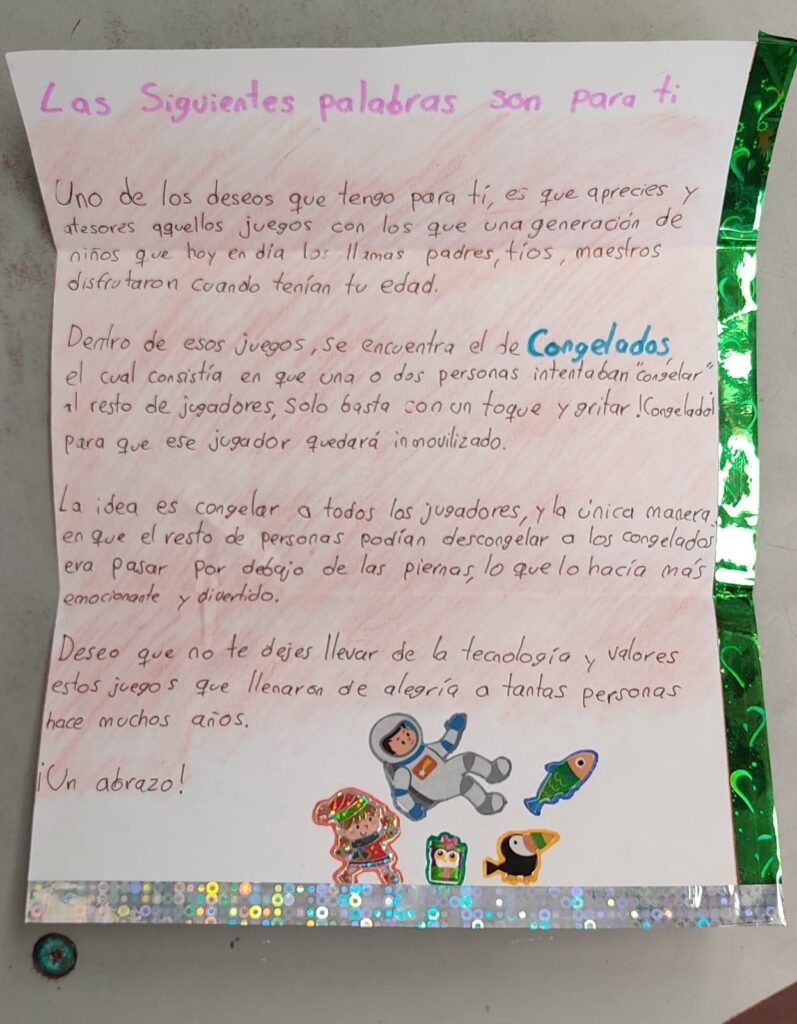 Las Siguientes palabras son para ti
Uno de los deseos que tengo para tí, es que aprecies y
atesores aquellos juegos con los que una generación de
niños que hoy en día los llamas padres, tíos, maestros
disfrutaron cuando tenían tu edad.
Dentro de esos juegos, se encuentra el de Congelados
el cual consistía en que una o dos personas intentaban "congelar"
al resto de jugadores, solo basta con un toque y gritar !Congelado!
para que ese jugador quedará inmovilizado.
La idea es congelar a todos los jugadores, y la única manera
en que el resto de personas podían descongelar a los congelados
era pasar por debajo de las piernas, lo que lo hacía más
emocionante y divertido.
Deseo que no te dejes llevar de la tecnología y valores
estos juegos que llenaron de alegría a tantas personas
hace muchos años.
¡Un abrazo!